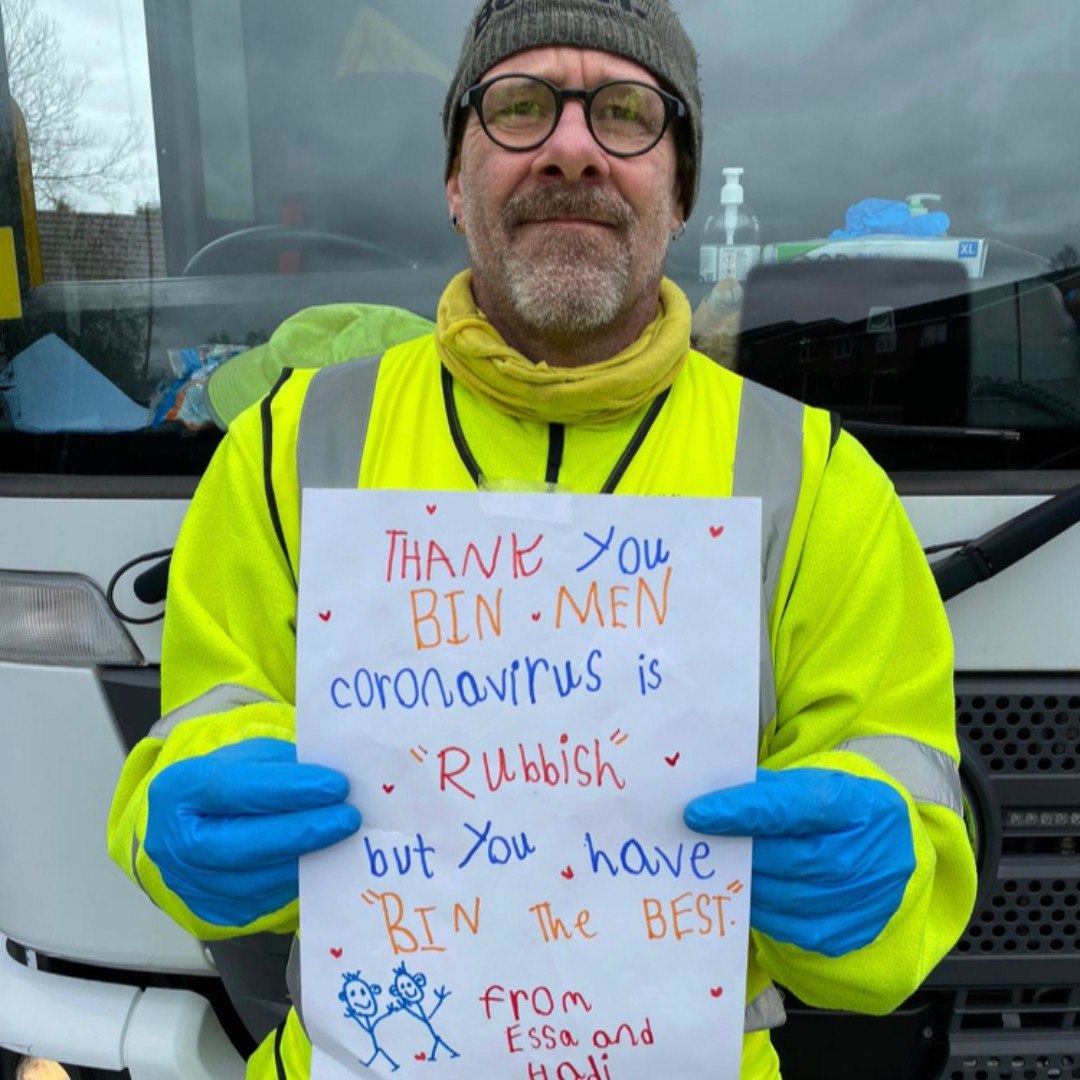 THANK YOU
BIN MEN
coronavirus is
"Rubbish"
but You have
"BIN The BEST."
from
Essa and
Hadi
XL